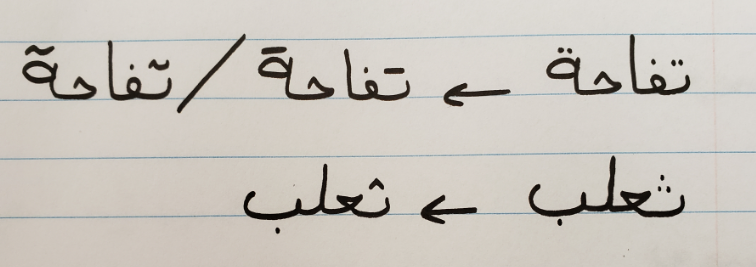 تفاحة ← تفاحة / تفاحة
ثعلب ← ثعلب